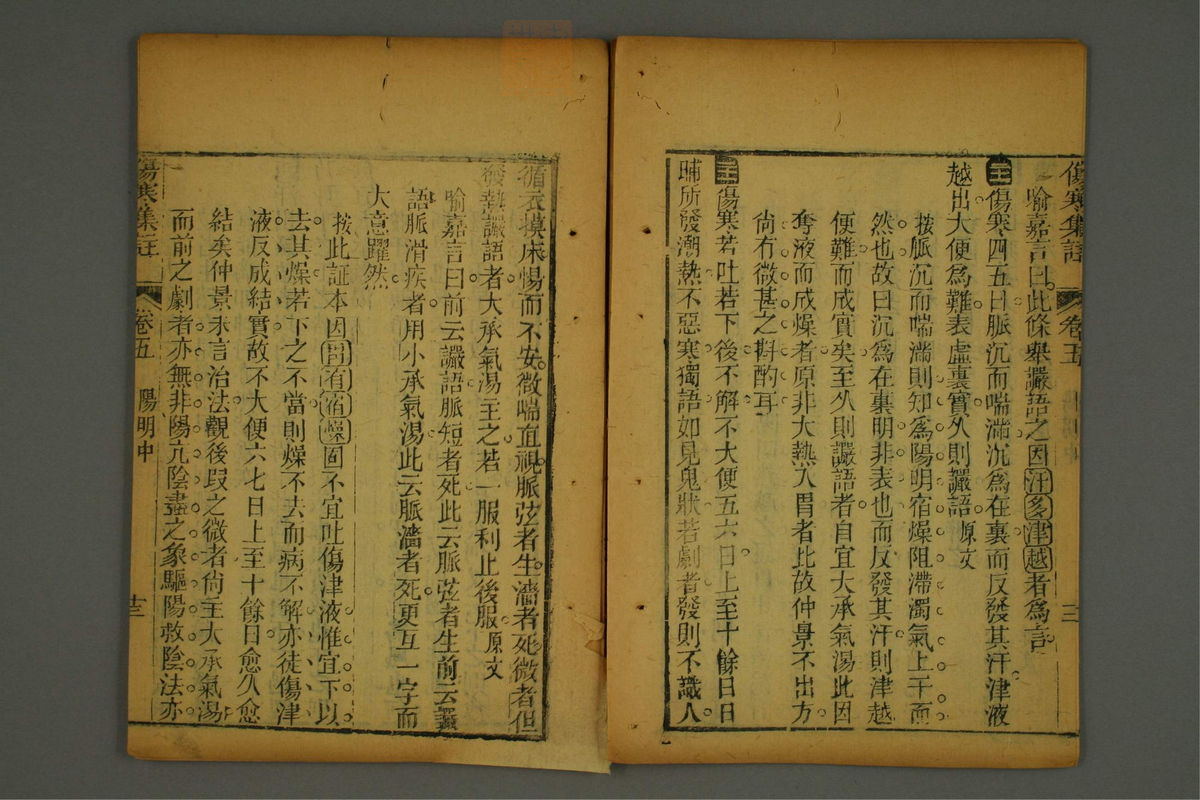 傷寒集註 卷五
喻嘉言曰此條舉讝語之因汗多津越者爲言
傷寒四五日脈沉而喘滿沉爲在裏而反發其汗津液
越出大便爲難表虛裏實久則讝語原文
按脈沉而喘滿則知爲陽明宿燥阻滯濁氣上干而
然也故曰沉爲在裏明非表也而反發其汗則津越
便難而成實矣至久則讝語者自宜大承氣湯此因
奪液而成燥者原非大熱入胃者比故仲景不出方
尙有微甚之斟酌耳
傷寒若吐若下後不解不大便五六日上至十餘日日
晡所發潮熱不惡寒獨語如見鬼狀若劇者發則不識人
循衣摸床惕而不安微喘直視脈弦者生濇者死微者但
發熱讝語者大承氣湯主之若一服利止後服原文
喻嘉言曰前云讝語脈短者死此云脈弦者生前云讝
語脈滑疾者用小承氣湯此云脈濇者死更互一字而
大意躍然
按此証本因胃有宿燥固不宜吐傷津液惟宜下以
去其燥若下之不當則燥不去而病不解亦徒傷津
液反成結實故不大便六七日上至十餘日愈久愈
結矣仲景未言治法觀後叚之微者尙主大承氣湯
而前之劇者亦無非陽亢陰盡之象驅陽救陰法亦
傷寒集註 卷五 陽明中